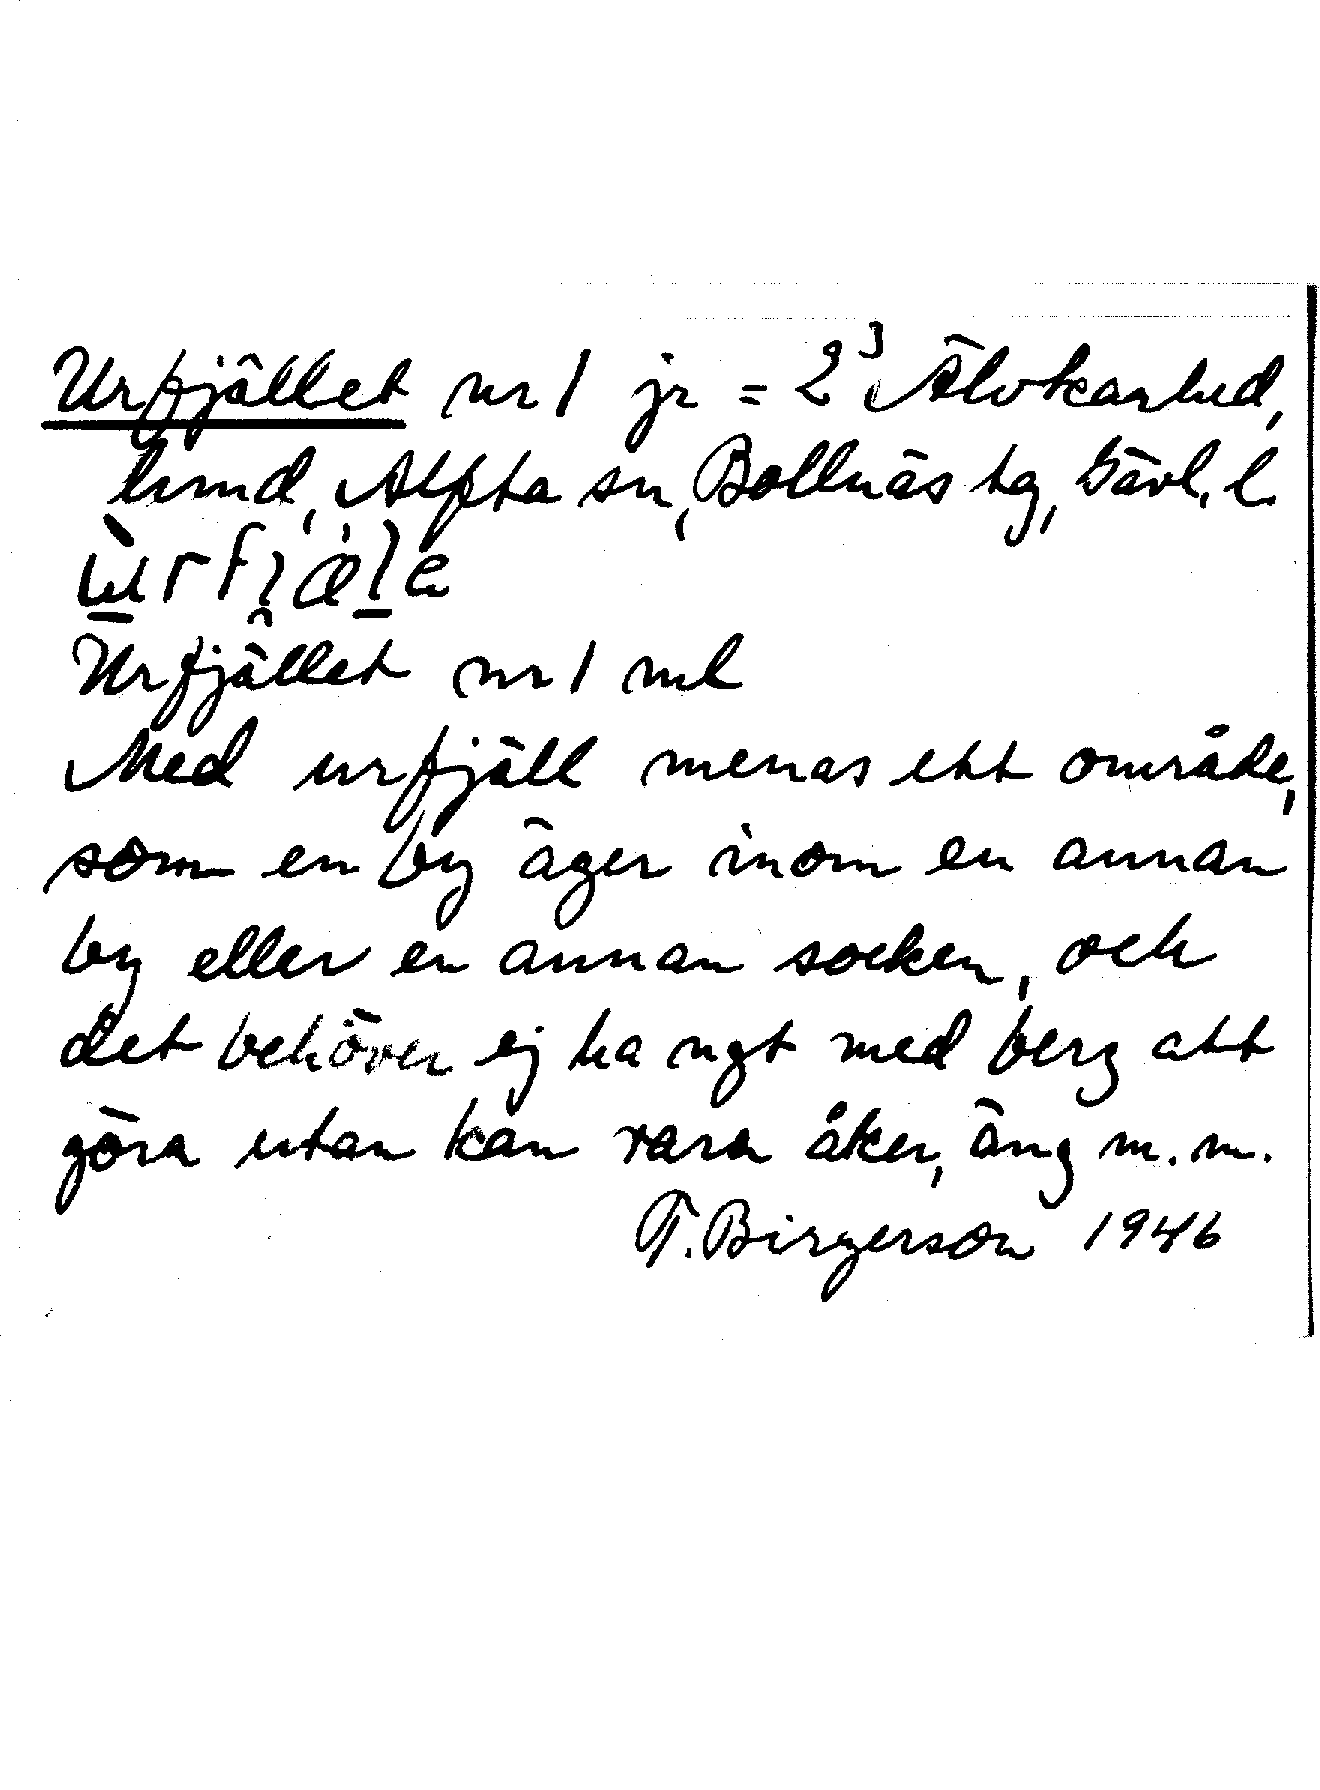 Urfjället nr 1 jr = 2³ Älvkarhed,
lund, Alfta sn, Bollnäs tg, Gävl. l.
Urfjället nr 1 ml
Med urfjäll menas ett område,
som en by äger inom en annan
by eller en annan socken, och
det behöver ej ha ngt med berg att
göra utan kan vara åker, äng m.m.
T. Birgerson 1946